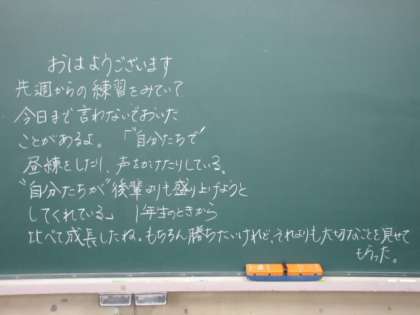 おはようございます
先週からの練習をみていて
今日まで言わないでおいた
ことがあるよ。「"自分たちで"
昼練をしたり、声をかけたりしている。
"自分たちが"後輩よりも盛り上げようと
してくれている」 1年生のときから
比べて成長したね。もちろん勝ちたいけれど、それよりも大切なことを見せて
もらった。